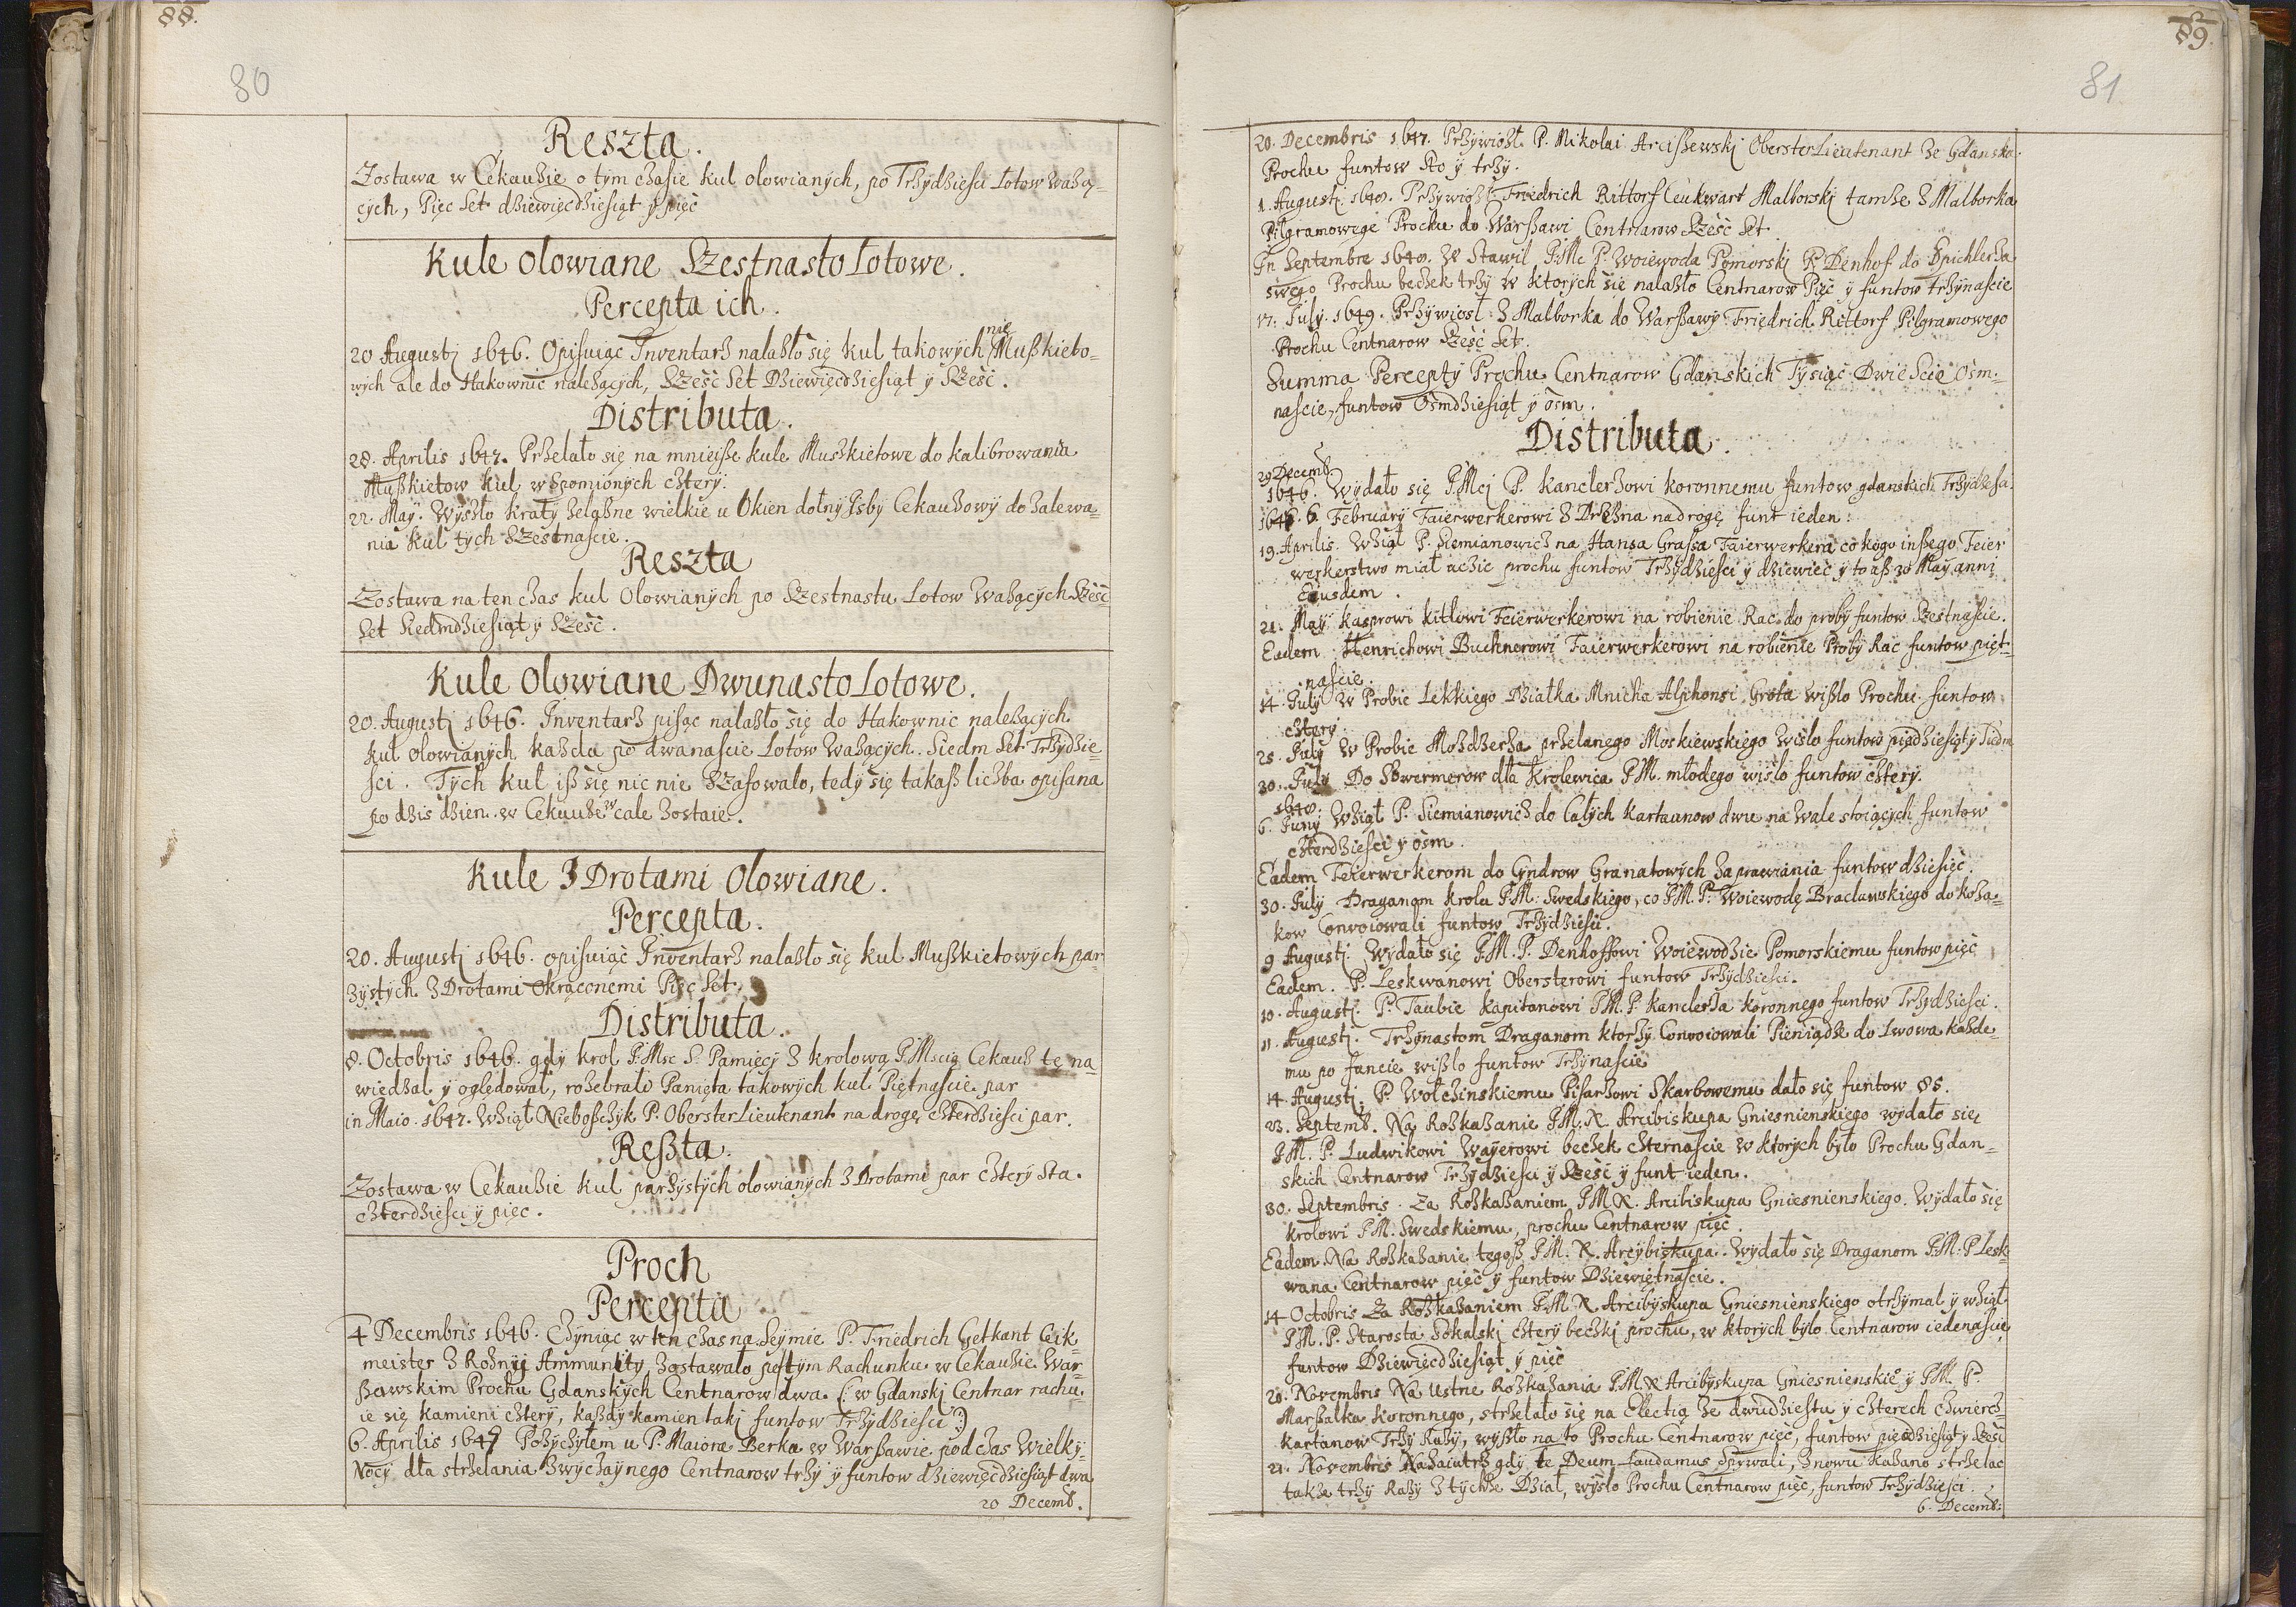 88.
80
Reszta.
Zostawa w Cekauzie o tym czasie kul olowianych, po Trzydziesci Łotow wazą-
cych, Pięc set dziewięcdziesiąt y pięć
Kule Olowiane SzestnastoŁotowe.
Percepta ich.
20 Augustj 1646. Opisuiąc Inventarz nalaszło się kul takowych nie Mußkieto-
wych ale do Hakownic nalezących, Szesc set Dziewięcdziesiąt y Szesc.
Distributa.
28. Aprilis 1647. Przelało się na mnieisze kule Muszkietowe do kalibrowania
Mußkietow kul wspomionych cztery.
22. May. Wyszło kraty zelazne wielkie u Okien dolny Isby Cekauzowy do zalewa-
nia kul tych Szestnascie.
Reszta
Zostawa na ten czas kul Olowianych po Szestnastu Łotow Wazących Szesc
set siedmdziesiąt y Szesc.
Kule Olowiane DwunastoŁotowe.
20. Augustj 1646. Inventarz pisąc nalaszło się do Hakownic nalezących
kul olowianych kazda po dwanascie Łotow wazących. Siedm set Trzydzie-
sci. Tych kul iß się nic nie Szafowało, tedy się takaß liczba opisana
po dzis dzien w Cekauzie w cale zostaie.
Kule Z Drotami Olowiane.
Percepta.
20. Augustj 1646. opisuiąć Inventarz nalaszło się kul Mußkietowych par
zystych Z Drotami Okrąconemi Pięc set.
Distributa.
8. Octobris 1646. gdy krol JMsc S. Pamięcj Z krolową JMscią Cekauz te na-
wiedzal y oględował, rozebrali Panięta takowych kul Piętnascie par
in Maio 1647. Wziął Nieboszczyk P. OberstерLieutenant na drogę czterdziesci par.
Reßta.
Zostawa w Cekauzie kul parzystych olowianych Z Drotami par cztery sta.
czterdziesci y pięc.
Proch
Percepta
4 Decembris 1646. Czyniąc w ten czas na Seymie P. Friedrich Getkant Ceik-
meister Z Roznyi Ammunity zostawało po tym Rachunku w Cekauzie War-
ßawskim Prochu Gdanskych Centnarow dwa. (: w Gdanskj Centnar rachu-
ie się kamieni cztery, kazdy kamien takj funtow Trzydziesci :)
6. Aprilis 1647 Pozyczyłem u P. Maiora Berka w Warßawie podczas Wielky-
Nocy dla strzelania Zwyczaynego Centnarow trzy y funtow dziewięcdziesiąt dwa
20 Decemb.
89.
81
20. Decembris 1647. Przywiozł P. Mikolai Arcißewskj OberstерLieutenant ze Gdanska
Prochu funtow sto y trzy.
1. Augustj 1648. Przywiozł Friedrich Rittorf Ceukwart Malborskj tamze Z Malborka
Pilgramowego Prochu do Warßawi Centnarow Szesc set.
In Septembre 1648. W stawil JMc P. Woiewoda Pomorskj P. Denhof do Spichlerza
swego Prochu beczek trzy w ktorych się nalaszło Centnarow Pięć y funtow trzynascie
17. July 1649. Przywiosł Z Malborka do Warßawy Friedrich Rittorf Pilgramowego
Prochu Centnarow Szesc set.
Summa Percepty Prochu Centnarow Gdanskich Tysiąc Dwie Scie Osm-
nascie, funtow Osmdziesiąt y osm.
Distributa.
29 Decemb.
1646. Wydało się JMcj P. kanclerzowi koronnemu funtow gdanskich Trzydzesci.
6 February Faierwerkerowi Z Drezna na drogę funt ieden.
19. Aprilis. Wziął P. Siemianowicz na Hansa Graßa Faierwerkera co kogo inßego Feier
werkerstwo miał uczic prochu funtow Trzydziesci y dziewiec y to aß 30 May anni
Eiusdem.
21. May kasprowi kitlowi Feierwerkerowi na robienie Rac do proby funtow Szestnascie.
Eadem Henrichowi Buchnerowi Faierwerkerowi na robienie Proby Rac funtow pięt-
nascie.
14. July W Probie Lekkiego Dziatka Mnicha Alphonsi Grota wißlo Prochu funtow
cztery.
25. July W Probie Mozdzerza przelanego Moskiewskiego wisło funtow pięcdziesiąt y siedm
30. July Do Szwermerow dla krolewica JM. młodego wisło funtow cztery.
1648.
6. Juny Wziął P. Siemianowicz do Całych kartaunow dwu na wale stoiących funtow
czterdziesci y osm.
Eadem Feierwerkerom do Cyndrow Granatowych zaprawiania funtow dziesięć.
30. July Draganom krola JM. Swedskiego, co JM. P. Woiewodę Bracławskiego do koza-
kow Convoiowali funtow Trzydziesci.
9 Augustj. Wydało się JM. P. Denhoffowi Woiewodzie Pomorskiemu funtow pięć
Eadem. P. Leskwanowi Obersterowi funtow Trzydziesci.
10. Augustj. P. Taubie kapitanowi JM. P. kanclerza koronnego funtow Trzydziesci.
11. Augustj. Trzynastom Draganom ktorzy Convoiowali Pieniądze do Lwowa kazde-
mu po funcie wißlo funtow Trzynascie
14. Augustj. P. Wołczinskiemu Pisarzowi Skarbowemu dało się funtow 85.
23. Septemb. Na Rozkazanie JM. X. Arcibiskupa Gniesnienskiego wydało się
JM. P. Ludwikowi Wayerowi beczek czternascie w ktorych było Prochu Gdan-
skich Centnarow Trzydziesci y Szesc y funt ieden.
30. Septembris. Za Rozkazaniem JM X. Arcibiskupa Gniesnienskiego. Wydało się
krolowi JM. Swedskiemu, prochu Centnarow pięć.
Eadem Na Rozkazanie tegoß JM. X. Arcybiskupa. Wydało się Draganom JM. P. Lesk
wana Centnarow pięć y funtow Dziewiętnascie.
14 Octobris Za Rozkazaniem JM. X Arcibyskupa Gniesnienskiego otrzymal y wziął
JM. P. Starosta Sokalskj cztery beczkj prochu, w ktorych było Centnarow iedenascie
funtow Dziewięcdziesiąt y pięc
20. Novembris Na Ustne Rozkazania JM. X Arcibyskupa Gniesnienskie y JM. P.
Marßalka koronnego, strzelało się na Electią ze dwudziestu y czterech czwierc
kartanow Trzy Razy, wyszło na to Prochu Centnarow pięć, funtow pięcdziesiąt y szesc
21. Novembris Nazaiutrz gdy te Deum Laudamus spywali, znowu kazano strzelac
takze trzy Razy Z tychze Dział, wyslo Prochu Centnarow pięc, funtow Trzydziesci.
6. Decemb: